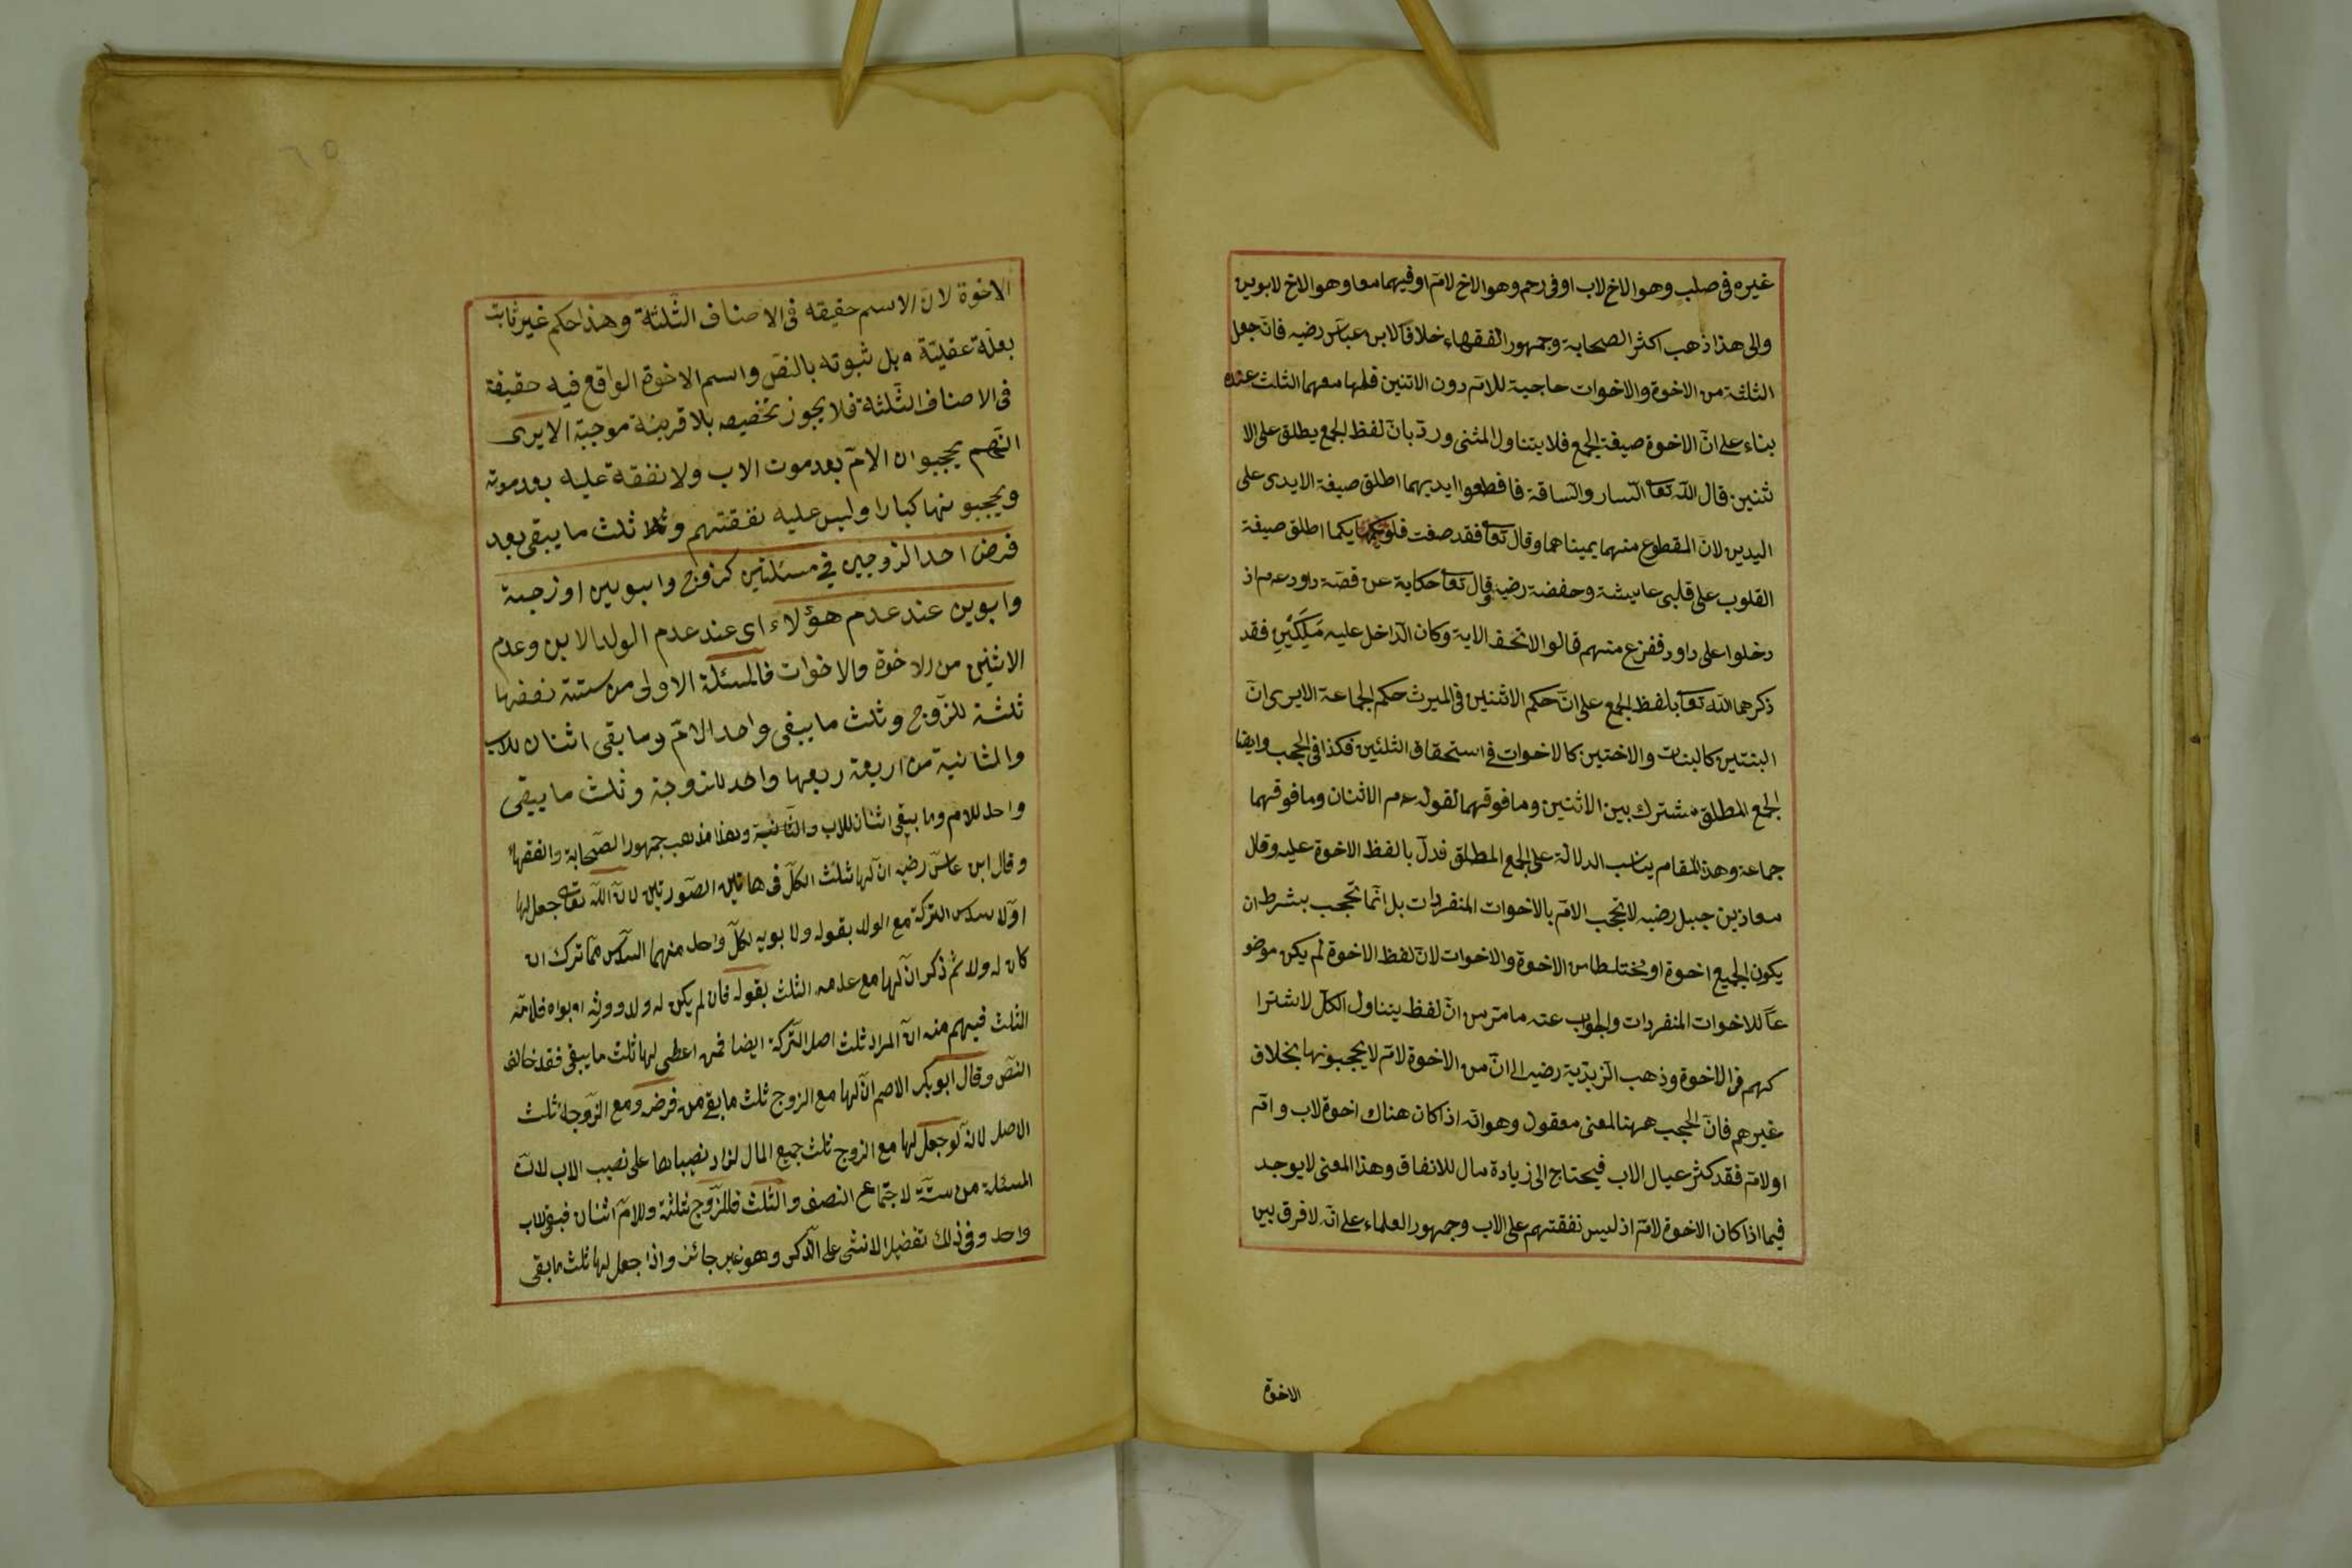 غيره فى صلب وهو الاخ لاب او فى رحم وهو الاخ لامّ او فيهما معا وهو الاخ لابوين
والى هذا ذهب اكثر الصحابة وجمهور الفقهاء خلافا لابن عباس رضيه فانّه جعل
الثلثة من الاخوة والاخوات حاجبة للامّ دون الاثنين فلها معهما الثلث عنده
بناء على انّ الاخوة صيغة الجمع فلا يتناول المثنى وردّ بانّ لفظ الجمع يطلق على الا
ثنين قال اللّه تعا السّارق والسّارقة فاقطعوا ايديهما اطلق صيغة الايدى على
اليدين لانّ المقطوع منهما يميناهما وقال تعا فقد صغت قلوبكما اطلق صيغة
القلوب على قلبى عايشة وحفصة رضيه وقال تعا حكاية عن قصّة داود عم اذ
دخلوا على داود ففزع منهم قالوا لاتخف الاية وكان الدّاخل عليه مَلَكَيْنِ فقد
ذكرهما اللّه تعا بلفظ الجمع على انّ حكم الاثنين فى الميرث حكم الجماعة الايرى انّ
البنتين كالبنات والاختين كالاخوات فى استحقاق الثلثين فكذا فى الحجب وايضا
الجمع المطلق مشترك بين الاثنين ومافوقهما لقوله عم الاثنان ومافوقهما
جماعة وهذا المقام يناسب الدلالة على الجمع المطلق فدلّ بالفظ الاخوة عليه وقال
معاذ بن جبل رضيه لاتحجب الامّ بالاخوات المنفردات بل انّما تحجب بشرط ان
يكون الجميع اخوة او مختلطا من الاخوة والاخوات لانّ لفظ الاخوة لم يكن موضو
عاً للاخوات المنفردات والجواب عنه مامرّ من انّ لفظ يتناول الكلّ لاشترا
كهم فى الاخوة وذهب الزيديّة رضيه الى انّ من الاخوة لامّ لايحجبونها بخلاف
غيرهم فانّ الحجب ههنا لمعنى معقول وهو انّه اذا كان هناك اخوة لاب وامّ
او لامّ فقد كثر عيال الاب فيحتاج الى زيادة مال للانفاق وهذا المعنى لايوجد
فيما اذا كان الاخوة لامّ اذ ليس نفقتهم على الاب وجمهور العلماء على انّه لافرق بين
الاخوة
الاخوة لانّ الاسم حقيقه فى الاصناف الثّلثة وهذا حكم غير ثابت
بعلّة عقليّة بل ثبوته بالنصّ واسم الاخوة الواقع فيه حقيقة
فى الاصناف الثّلثة فلا يجوز تخصيصه بلا قرينة موجبة الايرى
انّهم يحجبوان الامّ بعد موت الاب ولا نفقة عليه بعد موته
ويحجبو نها كبارا وليس عليه نفقتهم و ثلث ما يبقى بعد
فرض احد الزوجين فى مسئلتين كزوج وابوبين او زجة
وابوين عند عدم هؤلاء اى عند عدم الولد الابن وعدم
الاثنين من الاخوة والاخوات فالمسئلة الاولى من ستة نصفها
ثلثة للزّوج وثلث ما يبقى واحد الامّ وما بقى اثنان للاب
والثانية من اربعة ربعها واحد للزوجة وثلث ما يبقى
واحد للامّ وما يبقى اثنان للاب والثانية وهذا مذهب جمهور الصّحابة والفقهاء
وقال ابن عباس رضيه انّ لها ثلث الكلّ فى هاتين الصّورتين لانّ اللّه تعا جعل لها
اوّلا سدس التركة مع الولد بقوله ولابويه لكلّ واحد منهما السدس ممّا ترك ان
كان له ولد ثمّ ذكر انّ لها مع عدمه الثلث بقوله فان لم يكن له ولد وورثه ابواه فلامّه
الثلث فيهم منه انّ المراد ثلث اصل التّركة ايضا فمن اعطى لها ثلث ما يبقى فقد خالف
النصّ وقال ابوبكر الاصم انّ لها مع الزوج ثلث ما بقى من فرضه ومع الزّوجة ثلث
الاصل لانّه لو جعل لها مع الزوج ثلث جميع المال لزاد نصيباها على نصيب الاب لانّ
المسئلة من ستّة لاجتماع النصف والثلث فللزّوج ثلثة وللامّ اثنان فبقى لاب
واحد وفى ذلك تفضيل الانثى على الذّكر وهو غير جائز واذا جعل لها ثلث مابقى